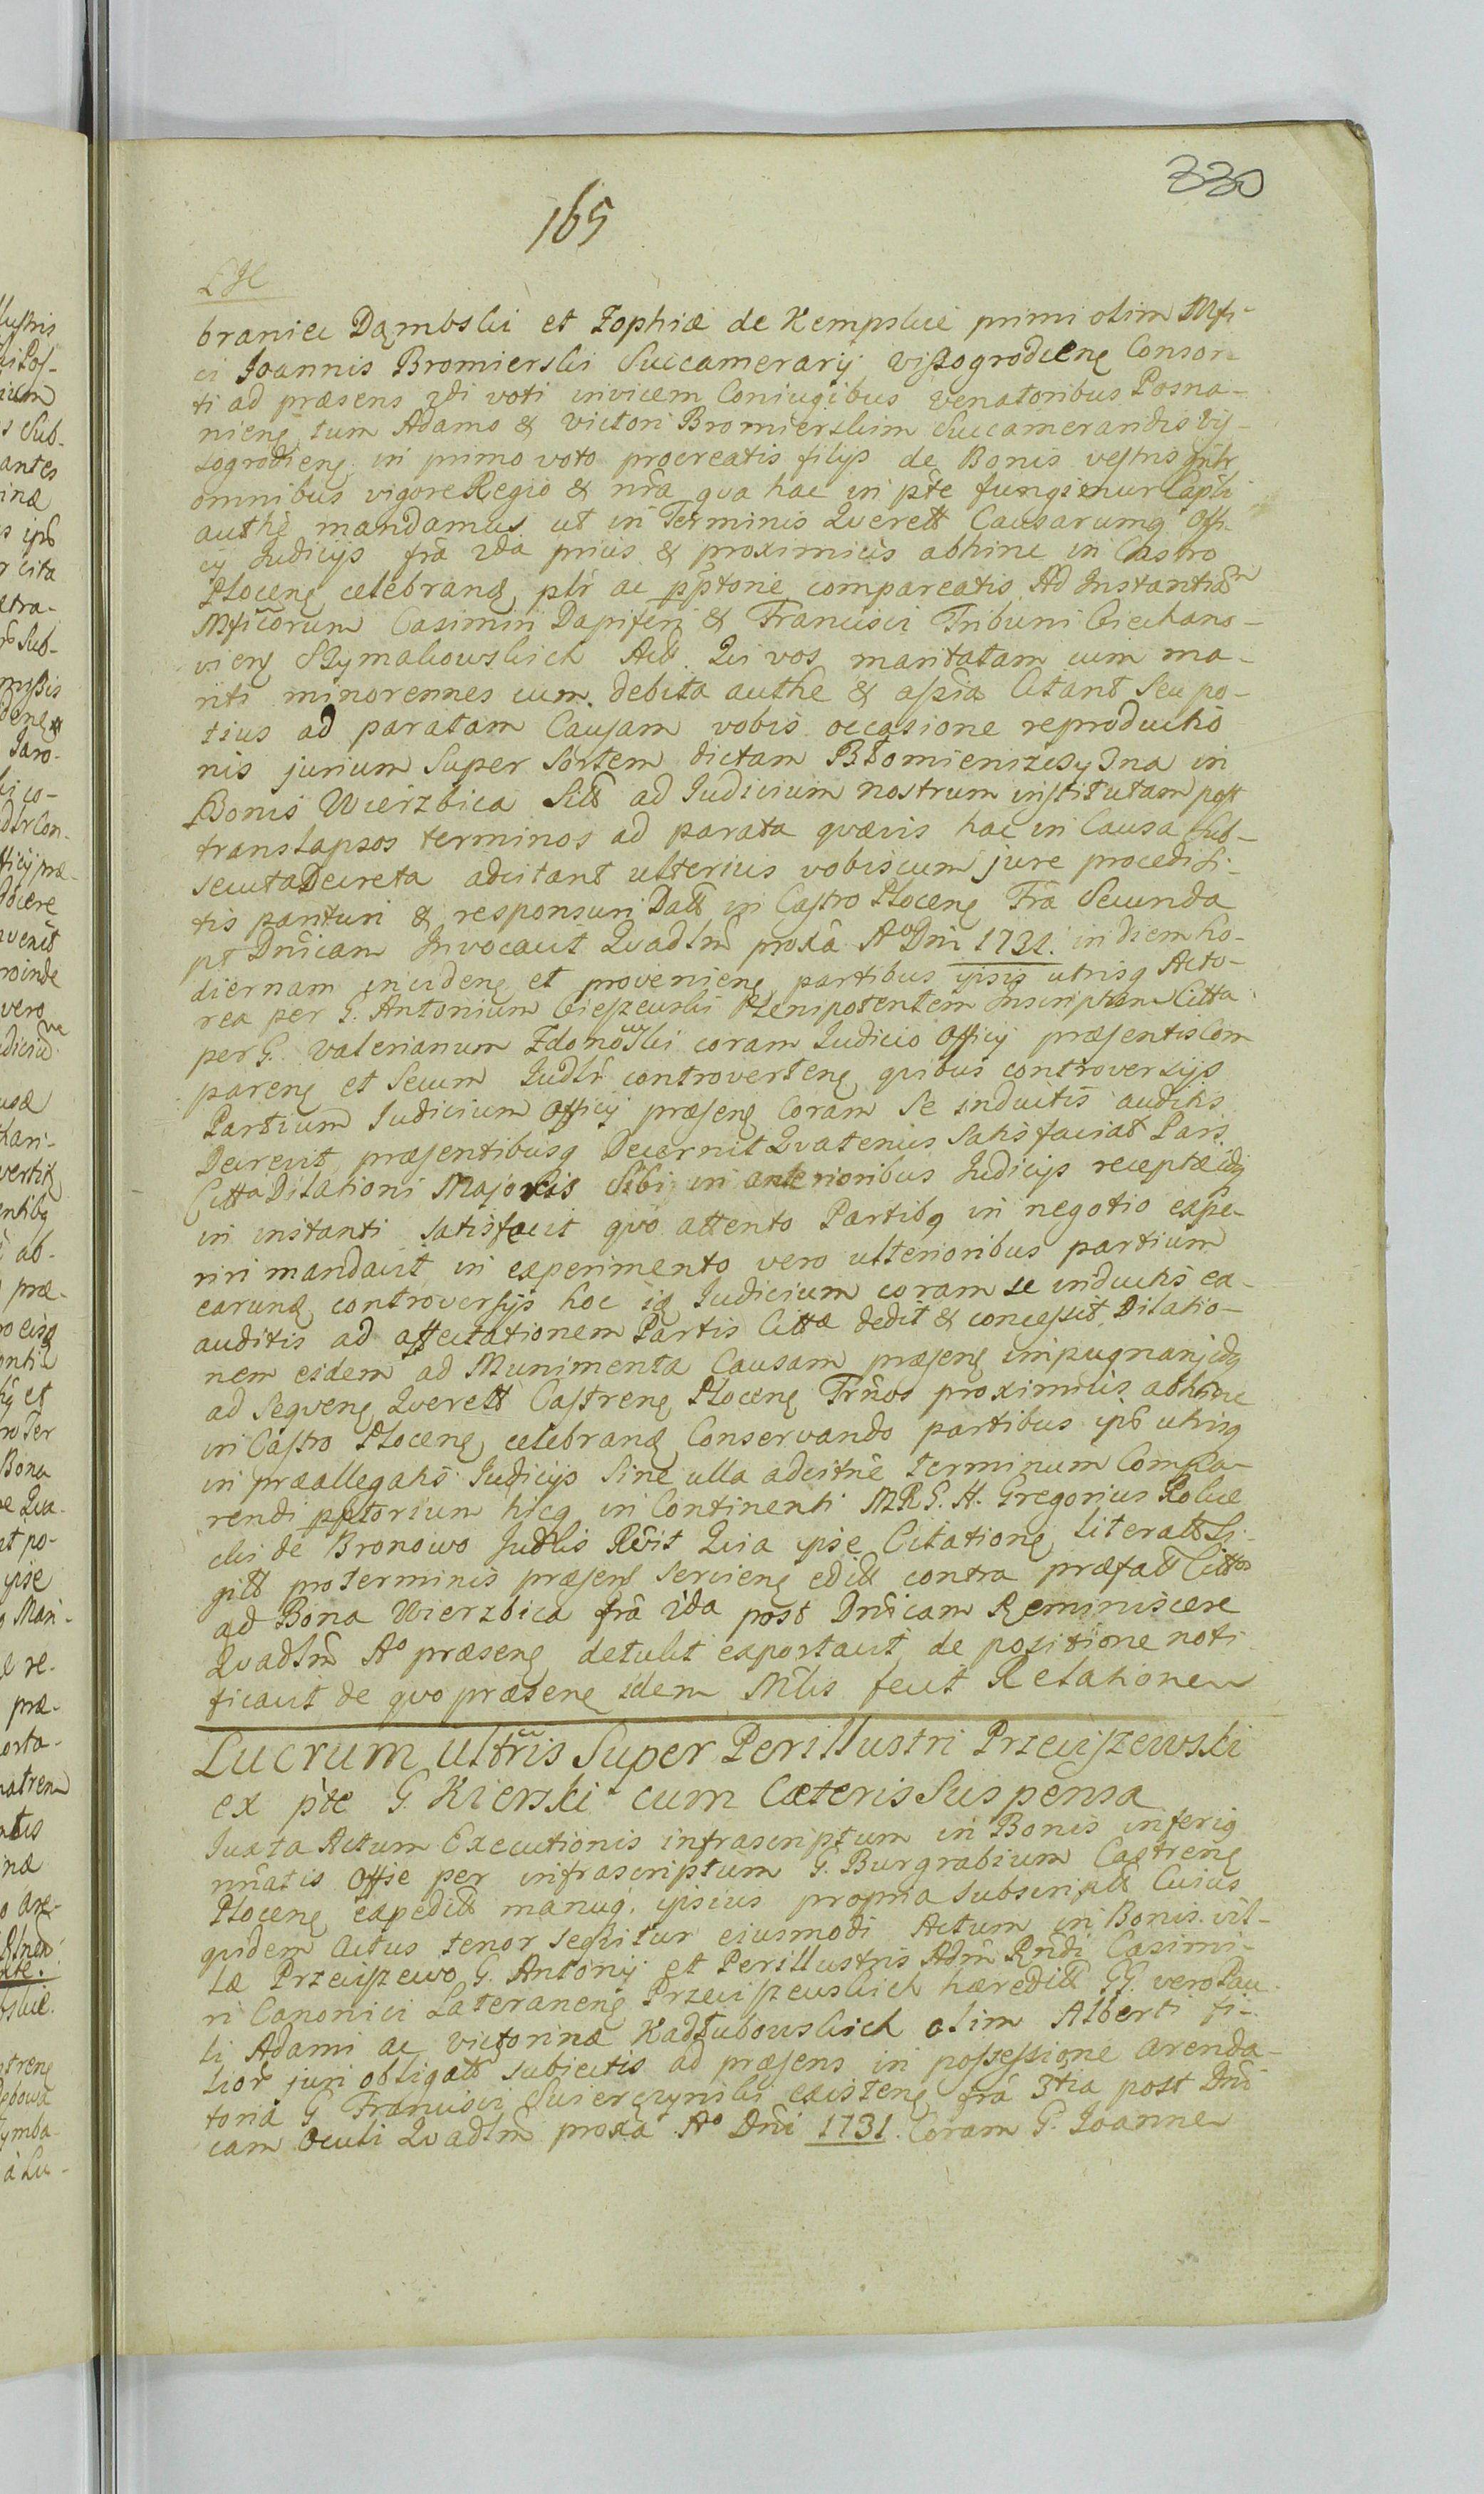 330
165
LH
braniec Dąmbski et Zophiæ de Kempskie primi olim Mfi-
ci Joannis Bromierski Succamerarij Vissogrodieng Consor-
ti ad præsens 2di voti invicem Coniugibus Venatoribus Posna-
nieng tum Adamo & Victori Bromierskim Succamerandis Vij-
sogrodieng in primo voto procreatis filijs de Bonis vestris gnlr
omnibus vigore Regio & nra qua hac in pte fungimur Capli
authe mandamus ut in Terminis Querell Causarumq Offi-
cij Judicijs fra 2da prius & proximius abhinc in Castro
Płoceng celebrand plr ac pptorie compareatis Ad Instantiam
Mficorum Casimiri Dapiferi & Francisci Tribuni Ciechano-
vieng Szymakowskich Act. Qui vos maritatam cum ma-
riti minorennes cum debita authe & assia Citant Seu po-
tius ad paratam Causam vobis occasione reproductio
nis jurium Super Sortem dictam Błomienizsyzna in
Bonis Wierzbica Sitt ad Judicium nostrum institutam post
translapsos terminos ad parata quævis hac in Causa Sub-
secuta Decreta adcitant ulterius vobiscum jure procedi Si-
tis parituri & responsuri Datt in Castro Płoceng Fra Secunda
pt Dnicam Invocavit Quadlm proxa Ao Dni 1731. in diem ho-
diernam incideng et provenieng partibus ipsis utrisq Acto-
rea per G. Antonium Ciejzewski Plenipotentem Inscriptum Citta
per G. Valerianum Zdonowski coram Judicio Officij præsentis Com
pareng et Secum Judlr controverteng quibus controversijs
Partium Judicium Officij præseng Coram Se inductis auditis
Decrevit præsentibusq Decernit Quatenus Satisfaciat Pars
Citta Dilationi Majoris Sibi in anterioribus Judicijs receptæ idq
in instanti satisfecit quo attento Partibq in negotio expe-
riri mandavit in experimento vero ulterioribus partium
earund controversijs hoc id Judicium coram se inductis ea-
auditis ad affectationem Partis Cittæ dedit & concessit Dilatio-
nem eidem ad Munimenta Causam præseng impugnan idq
ad Seqveng Querell Castreng Płoceng Trnos proximius abhinc
in Castro Płoceng celebrand Conservando partibus ips utrisq
in præallegatis Judicijs Sine ulla adcitne terminum Compa-
rendi pptorium hicq in Continenti MRS. H. Gregorius Role
cki de Bronowo Judlis Revit Quia ipse Citationg literatt Si-
gitt pro terminis præseng Servieng editt contra præfatt Cittos
ad Bona Wierzbica fra 2da post Dnicam Reminiscere
Quadlm Ao præseng detulit exportavit de positione noti
ficavit de quo præseng idem Mlis fecit Relationem
Lucrum ultris Super Perillustri Przeciszewski
ex pte G. Kierski cum Cæteris Suspensa
Juxta Actum Executionis infrascriptum in Bonis inferiq
nnatis Offse per infrascriptum G. Burgrabium Castreng
Płoceng expeditt manuq. ipsius propria subscriptt Cuius
quidem Actus tenor sequitur eiusmodi Actum in Bonis vil-
læ Przeciszewo G. Antonij et Perillustris Adm Rndi Casimi-
ri Canonici Lateraneng Przeciszewskich hæreditt GG. vero Pau-
li Adami ac Victorinæ Kadłubowskich olim Alberti fi-
lior juri obligatt subiectis ad præsens in possessione arenda-
toria G Francisci Swierczynski existeng fra 3tia post Dni
cam Oculi Quadlm proxa Ao Dni 1731. Coram G. Joanne